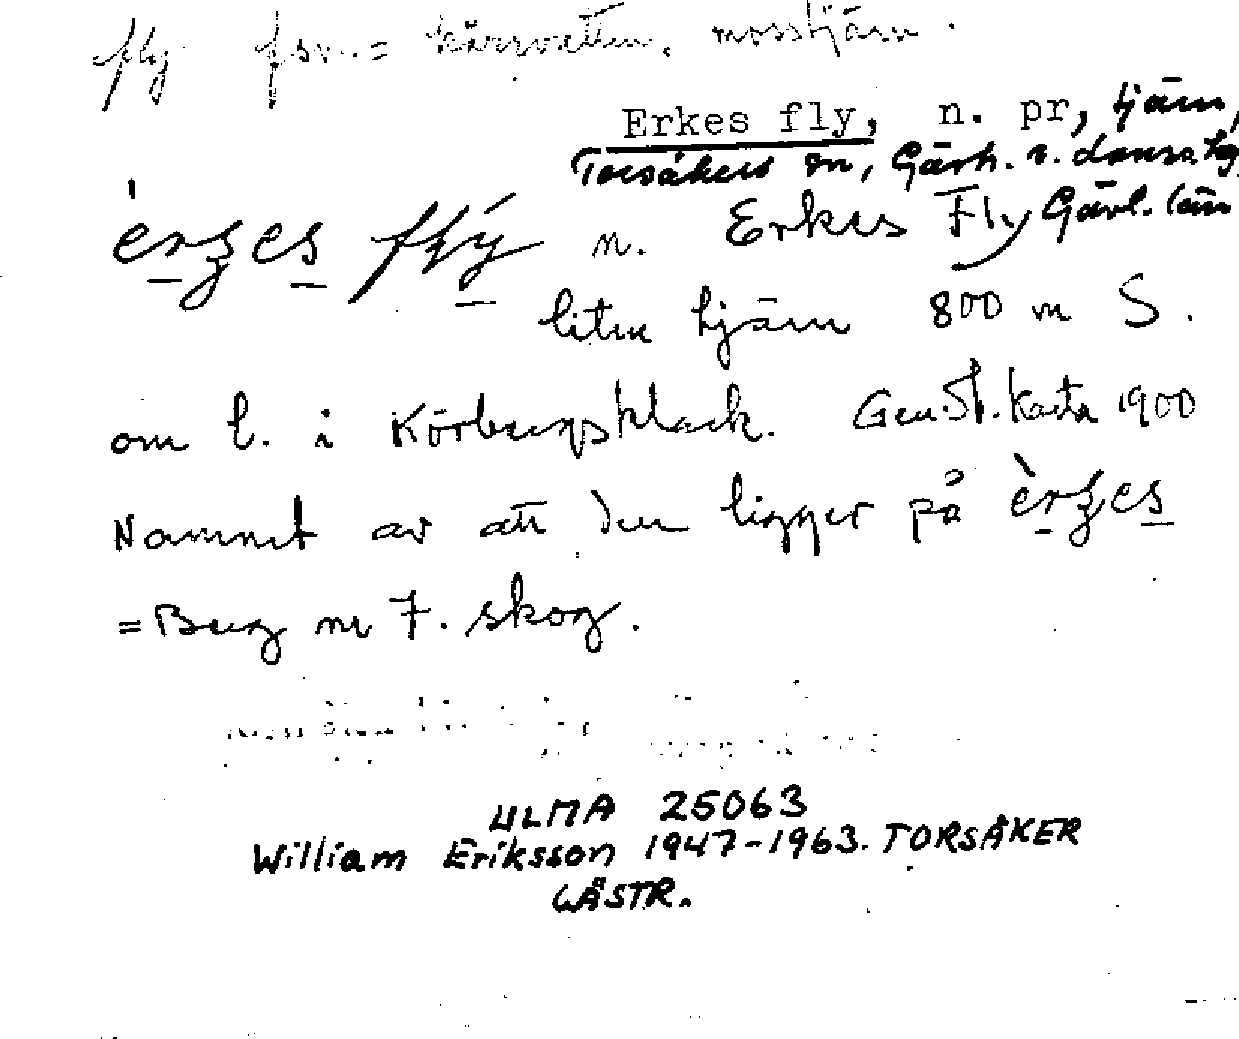 fly fsv. = kärrvatten, mosstjärn.
Erkes fly, n. pr, tjärn,
Torsåkers sn, Gästr. v. domsag
érʒes flý n. Erkes Fly Gävl. län
liten tjärn 800 m S.
om b. i Körbergsklack. Gen.St.karta 1900
Namnet av att den ligger på èrʒes
= Berg nr 7. skog.
ULMA 25063
William Eriksson 1947-1963. TORSÅKER
GÄSTR.